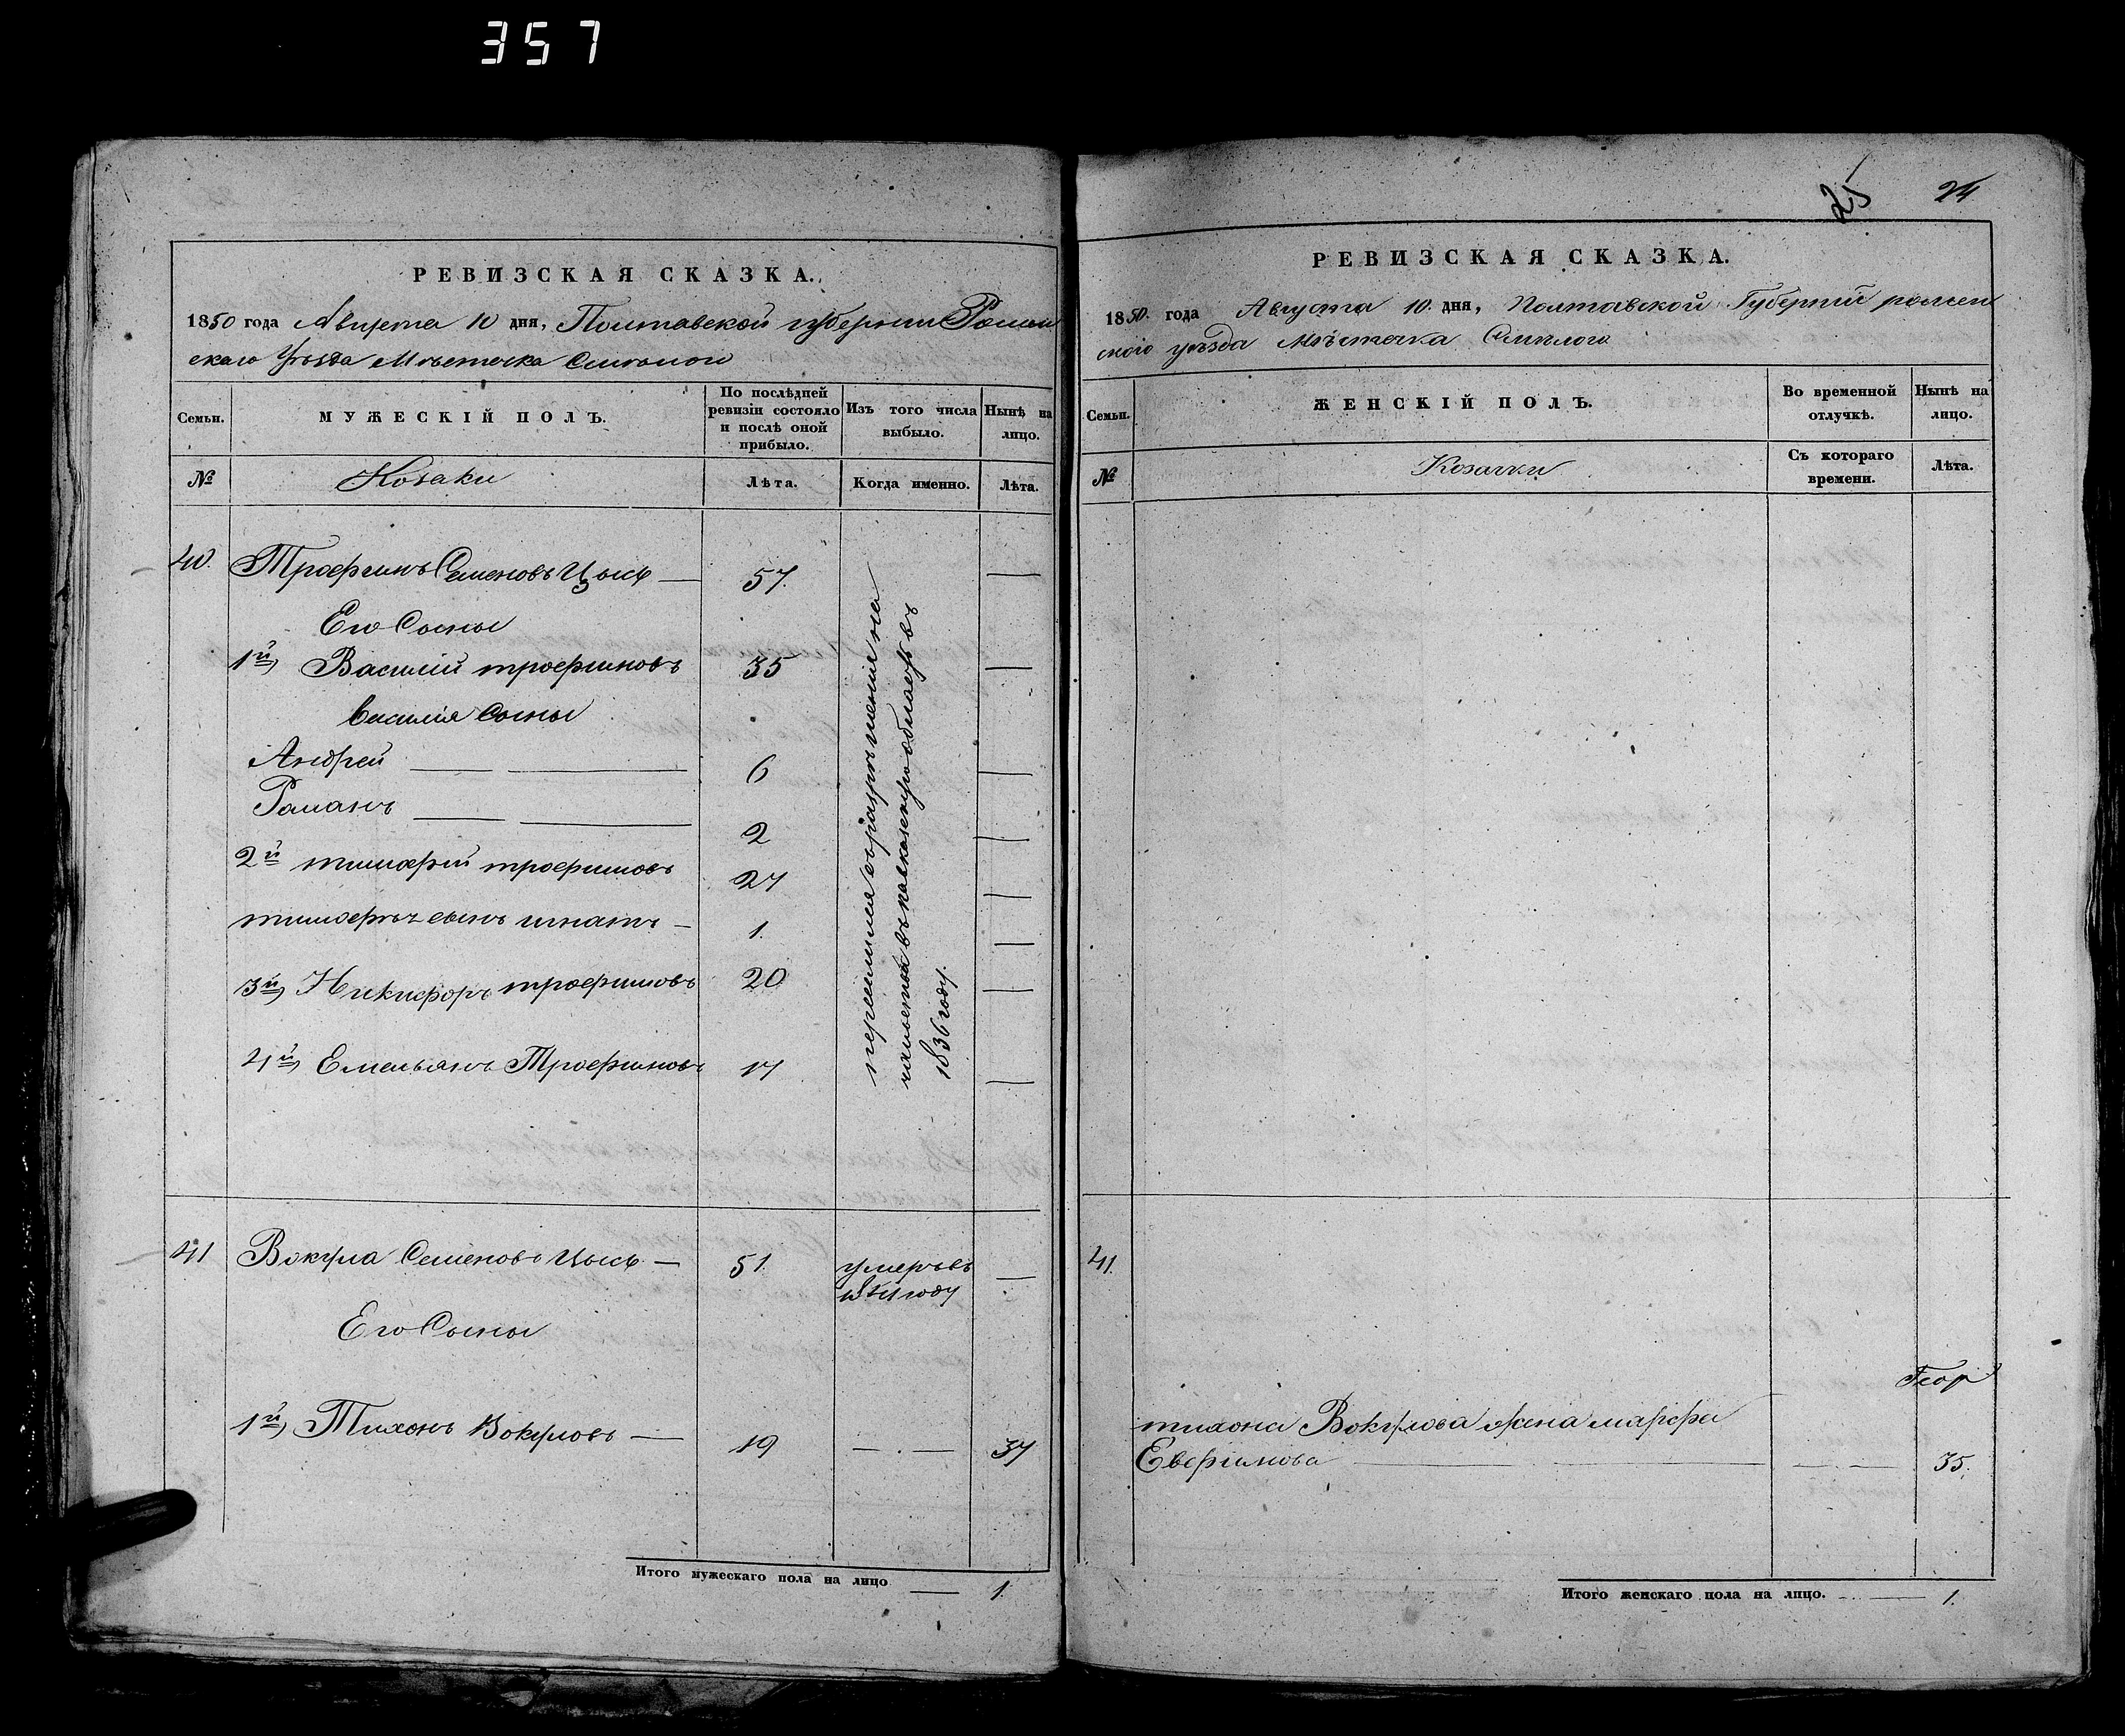 357
РЕВИЗСКАЯ СКАЗКА.
1850 года Августа 10 дня, Полтавской губернии Ромен
скаго Уѣзда Мѣстечка Смелого
Семьи.
МУЖЕСКІЙ ПОЛЪ.
По послѣдней ревизіи состояло и послѣ оной прибыло.
Изъ того числа выбыло.
Нынѣ на лицо.
№
Козаки
Лѣта.
Когда именно.
Лѣта.
40. Трофимъ Семеновъ Цысь — 57. —
Его Сыны
1й Василій трофимовъ 35 —
василія Сыны
Андрей — — 6 —
Романъ — — 2 —
2й тимофей трофимовъ 27 —
тимофея сынъ игнатъ — 1. —
3й Никифоръ трофимовъ 20 —
4й Емельянъ Трофимовъ 17 —
на
въ кавказскую область въ
1836 году.
41 Вокула Семеновъ Цысь — 51. умеръ въ —
году
Его Сыны
1й Тихонъ Вокуловъ — 19 — . — 37
Итого мужескаго пола на лицо — 1.
25 24
РЕВИЗСКАЯ СКАЗКА.
1850. года Августа 10. дня, Полтавской Губерніи ромен
ского уѣзда Мѣстечка Смѣлого
Семьи.
ЖЕНСКІЙ ПОЛЪ.
Во временной отлучкѣ.
Нынѣ на лицо.
№
Козачки
Съ котораго времени.
Лѣта.
41.
тихона Вокулова жена марфа
Евфимова — — — . — 35.
Итого женскаго пола на лицо. — 1.